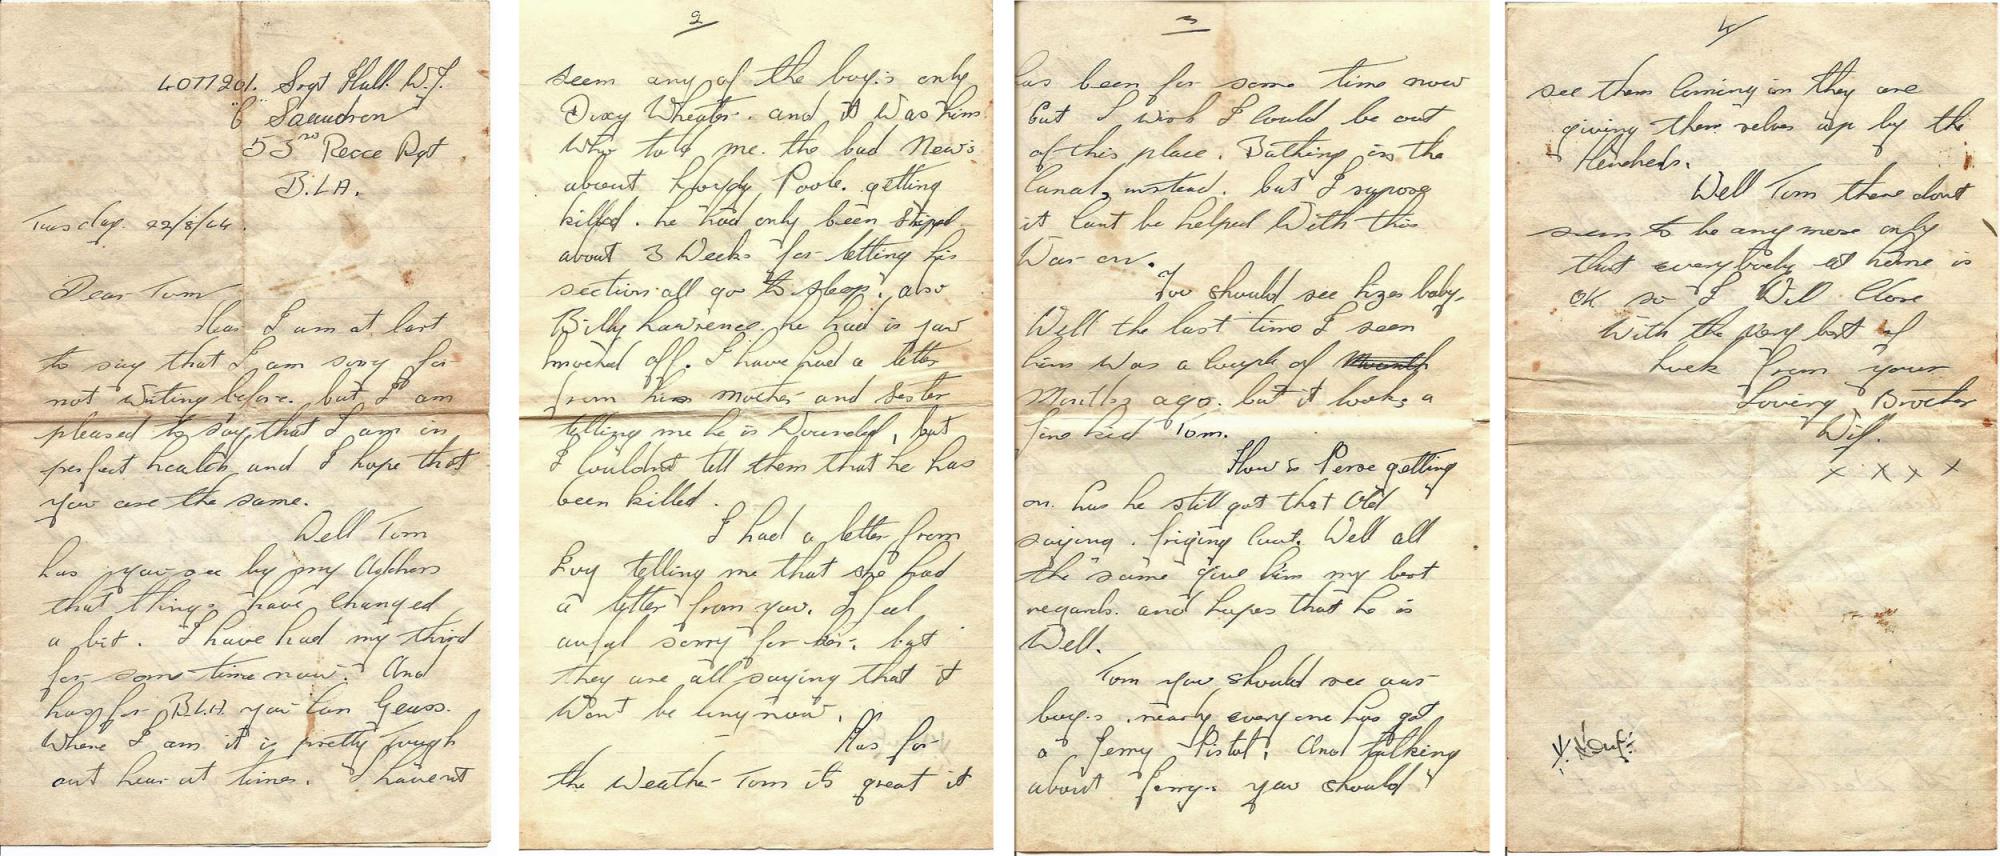 4077201. Srgt Hull. W.J.
"C" Sqaudron
53rd Recce Rgt
B.L.A.
Tuesday. 22/8/44.
Dear Tom
Has I am at last
to say that I am sorry for
not writing before. but I am
pleased to say, that I am in
perfect health, and I hope that
you are the same.
Well Tom
has you see by my Adghers
that things have changed
a bit. I have had my third
for some time now. And
has for B.L.A. you can Geuss.
Where I am it is pretty Tough
out hear at times. I havent
2
seem any of the boys only
Dixy Wheater. and it was him
who told me. the bad News
about Poole. getting
killed. he had only been striped
about 3 Weeks for letting his
section all go to sleep. also
Billy Lawrence. he had is jaw
knocked off. I have had a letter
from his mother and sister
telling me he is Wounded, but
I couldnt tell them that he has
been killed.
I had a letter from
Ivy telling me that she had
a letter from you. I feel
awful sorry for her. but
they are all saying that it
Won't be long now.
Has for
the Weather Tom it's great it
3
has been for some time now
but I wish I could be out
of this place. Bathing in the
Canal, instead. but I supose
it cant be helped With this
War on.
You should see baby.
Well the last time I seen
him was a couple of
Months ago. but it looks a
fine kid Tom.
How is Perse getting
on. has he still got that Old
saying. friging cunt. Well all
the same give him my best
regards. and hopes that he is
Well.
Tom you should see our
boys. nearly every one has got
a Jerry Pistol. And talking
about Jerrys you should
4
see them Coming in they are
giving them selves up by the
Hundreds.
Well Tom there dont
seem to be any more only
that everybody at home is
OK so I Will Close
With the very best of
luck from your
Loving Brother
Wif.
x x x x